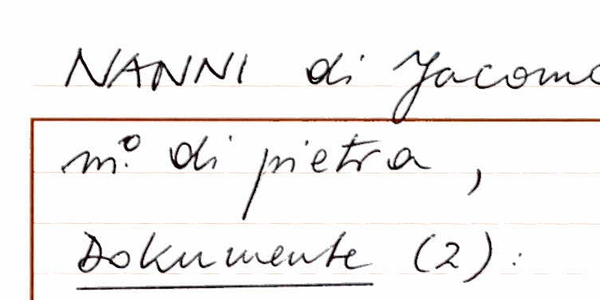 NANNI di Jacomo
m.º di pietra,
Dokumente (2):